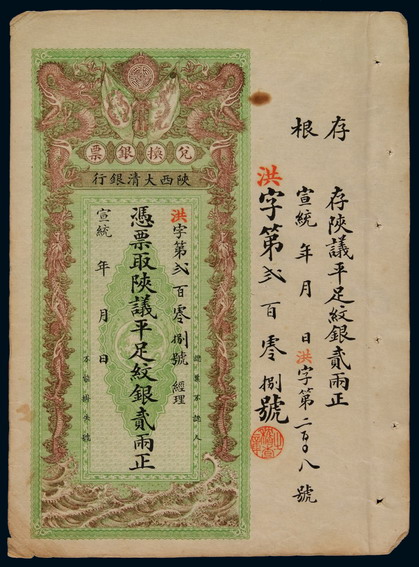 存根
存陝議平足紋銀貳兩正
宣統 年 月 日 洪字第二百〇八號
洪字第弍百零捌號
兌換銀票
陝西大清銀行
洪字第弍百零捌號 經理
憑票取陝議平足紋銀貳兩正
宣統 年 月 日